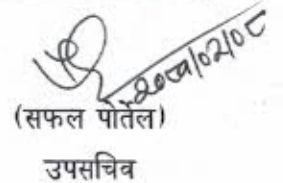 २०८१/०२/०८
(सफल पौतेल)
उपसचिव